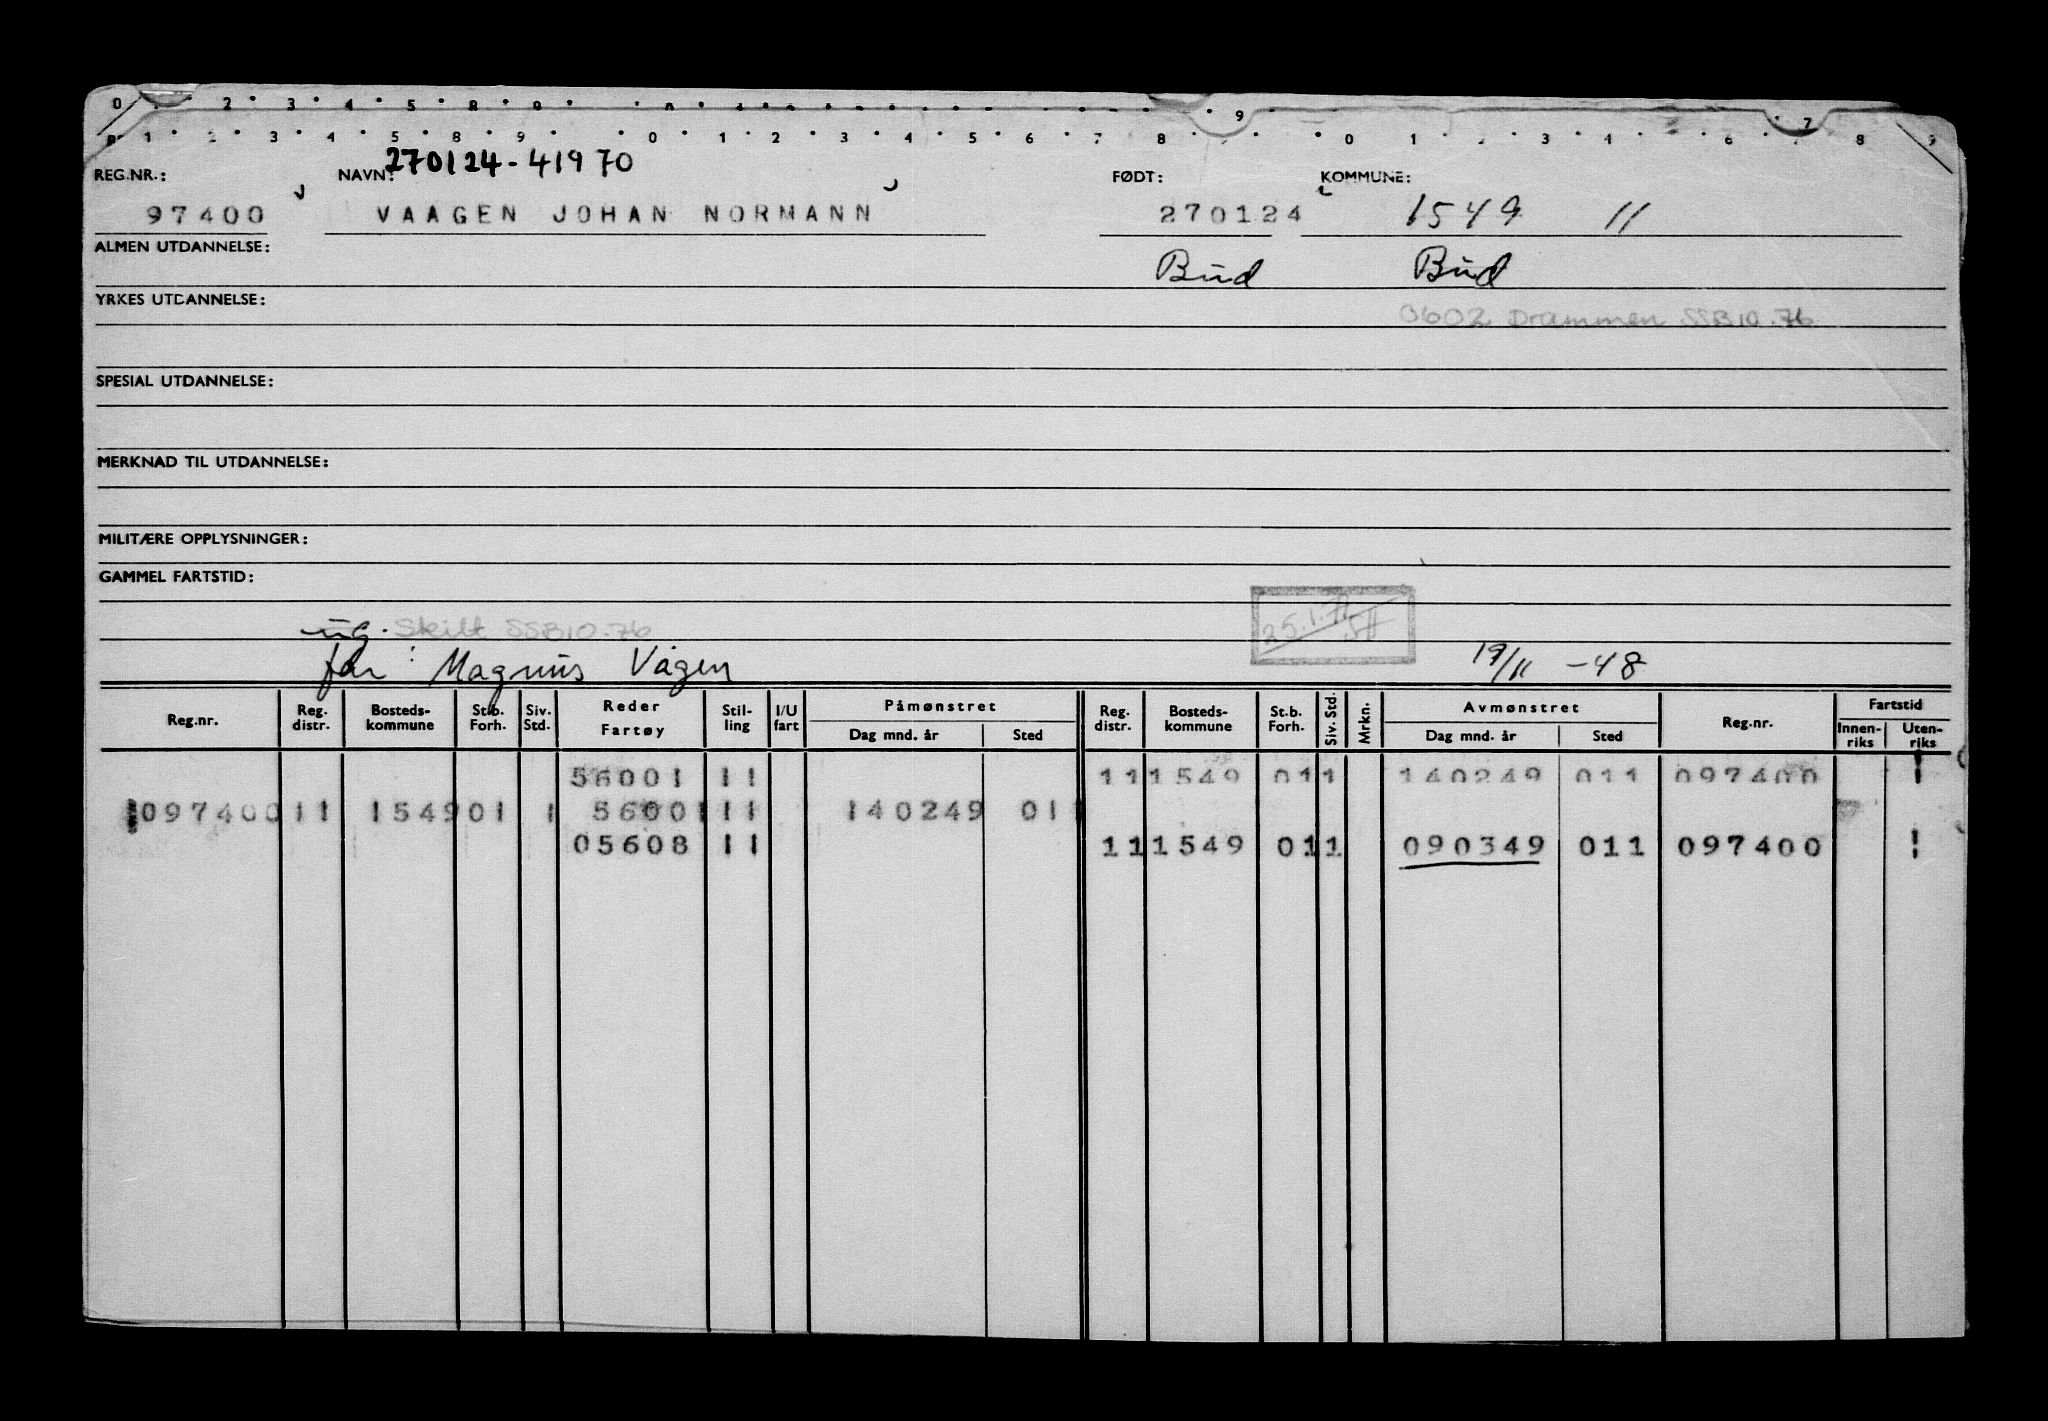 0 2 3 4 5 8 9 9 7
1 2 3 4 5 8 9 0 1 2 3 4 5 6 7 8 0 1 2 3 4 6 8 9
270124-41970
REG.NR.: NAVN: FØDT: KOMMUNE:
97400 VAAGEN JOHAN NORMANN 270124 1549 11
ALMEN UTDANNELSE: Bud Bud
YRKES UTDANNELSE:
0602 Drammen SSB10.76
SPESIAL UTDANNELSE:
MERKNAD TIL UTDANNELSE:
MILITÆRE OPPLYSNINGER:
GAMMEL FARTSTID:
ug. Skilt SSB10.76 25.1.71
far: Magnus Vågen 19/11 -48
Reg.nr. Reg. distr. Bosteds-kommune St.b. Forh. Siv. Std. Reder Fartøy Stil-ling I/U fart Påmønstret Dag mnd. år Sted Reg. distr. Bosteds-kommune St.b. Forh. Siv. Std. Mrkn. Avmønstret Dag mnd. år Sted Reg.nr. Fartstid Innen-riks Uten-riks
56001 11 11 1549 01 1 140249 011 097400 1
097400 11 1549 01 1 56001 11 140249 011
05608 11 11 1549 01 1 090349 011 097400 1